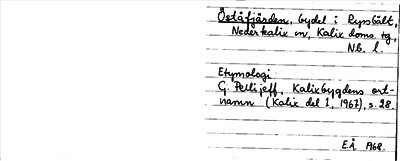 Öståfjärden, bydel i Rysbält,
Nederkalix sn, Kalix doms. tg,
N.b. l.
Etymologi
G. Pellijeff, Kalixbygdens ort-
namn (Kalix del I, 1967), s. 28.
E.Å. 1968.